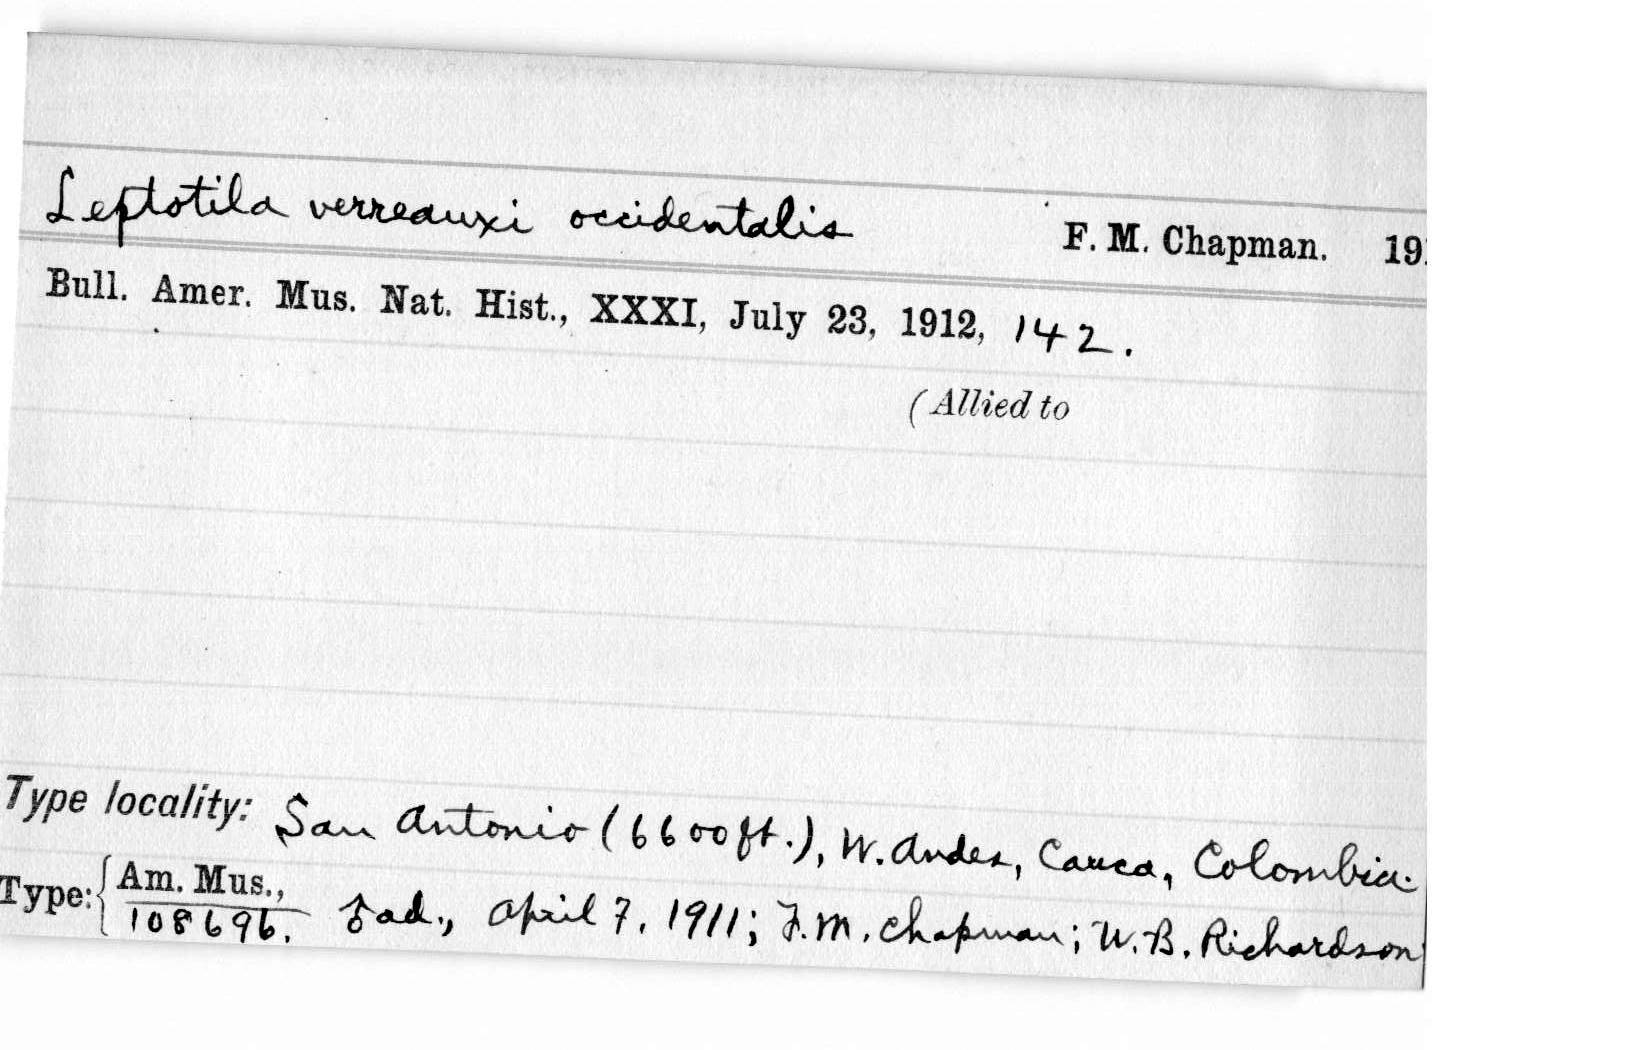 Leptotila verreauxi occidentalis F. M. Chapman. 19
Bull. Amer. Mus. Nat. Hist., XXXI, July 23, 1912, 142.
(Allied to
Type locality: San Antonio (6600 ft.), W. Andes, Cauca, Colombia.
Type: { Am. Mus., 108696. ad., April 7, 1911; F. M. Chapman; W. B. Richardson